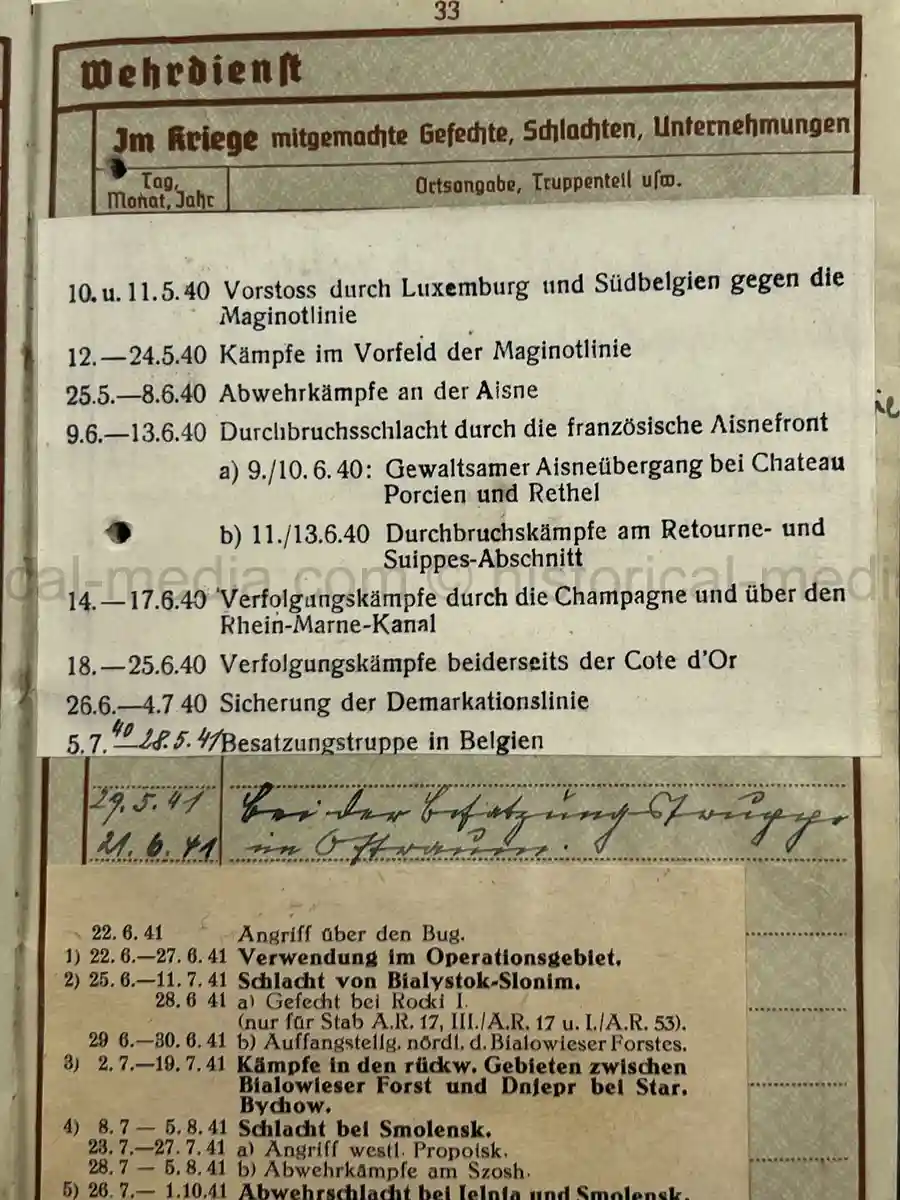 33
Wehrdienst
Im Kriege mitgemachte Gefechte, Schlachten, Unternehmungen
Tag,
Monat, Jahr
Ortsangabe, Truppenteil usw.
10. u. 11. 5. 40 Vorstoss durch Luxemburg und Südbelgien gegen die
Maginotlinie
12.—24.5.40 Kämpfe im Vorfeld der Maginotlinie
25.5.—8.6.40 Abwehrkämpfe an der Aisne
9.6.—13.6.40 Durchbruchsschlacht durch die französische Aisnefront
a) 9./10. 6. 40: Gewaltsamer Aisneübergang bei Chateau
Porcien und Rethel
b) 11./13.6.40 Durchbruchskämpfe am Retourne- und
Suippes-Abschnitt
14.—17.6.40 Verfolgungskämpfe durch die Champagne und über den
Rhein-Marne-Kanal
18.—25.6.40 Verfolgungskämpfe beiderseits der Cote d'Or
26.6.—4.7 40 Sicherung der Demarkationslinie
5.7. 40 — 28.5.41 Besatzungstruppe in Belgien
29.5.41 Bei der Besatzungstruppe
21.6.41 im Ostraum.
22. 6. 41 Angriff über den Bug.
1) 22. 6.—27. 6. 41 Verwendung im Operationsgebiet.
2) 25. 6.—11. 7. 41 Schlacht von Bialystok-Slonim.
28. 6 41 a) Gefecht bei Rocki I.
(nur für Stab A.R. 17, III./A.R. 17 u. I./A.R. 53).
29 6.—30. 6. 41 b) Auffangstellg. nördl. d. Bialowieser Forstes.
3) 2. 7.—19. 7. 41 Kämpfe in den rückw. Gebieten zwischen
Bialowieser Forst und Dnjepr bei Star.
Bychow.
4) 8. 7 — 5. 8. 41 Schlacht bei Smolensk.
23. 7.—27. 7. 41 a) Angriff westl. Propoisk.
28. 7 — 5. 8. 41 b) Abwehrkämpfe am Szosh.
5) 26. 7.— 1.10.41 Abwehrschlacht bei Jelnja und Smolensk.
cal-media.com © historical-medi